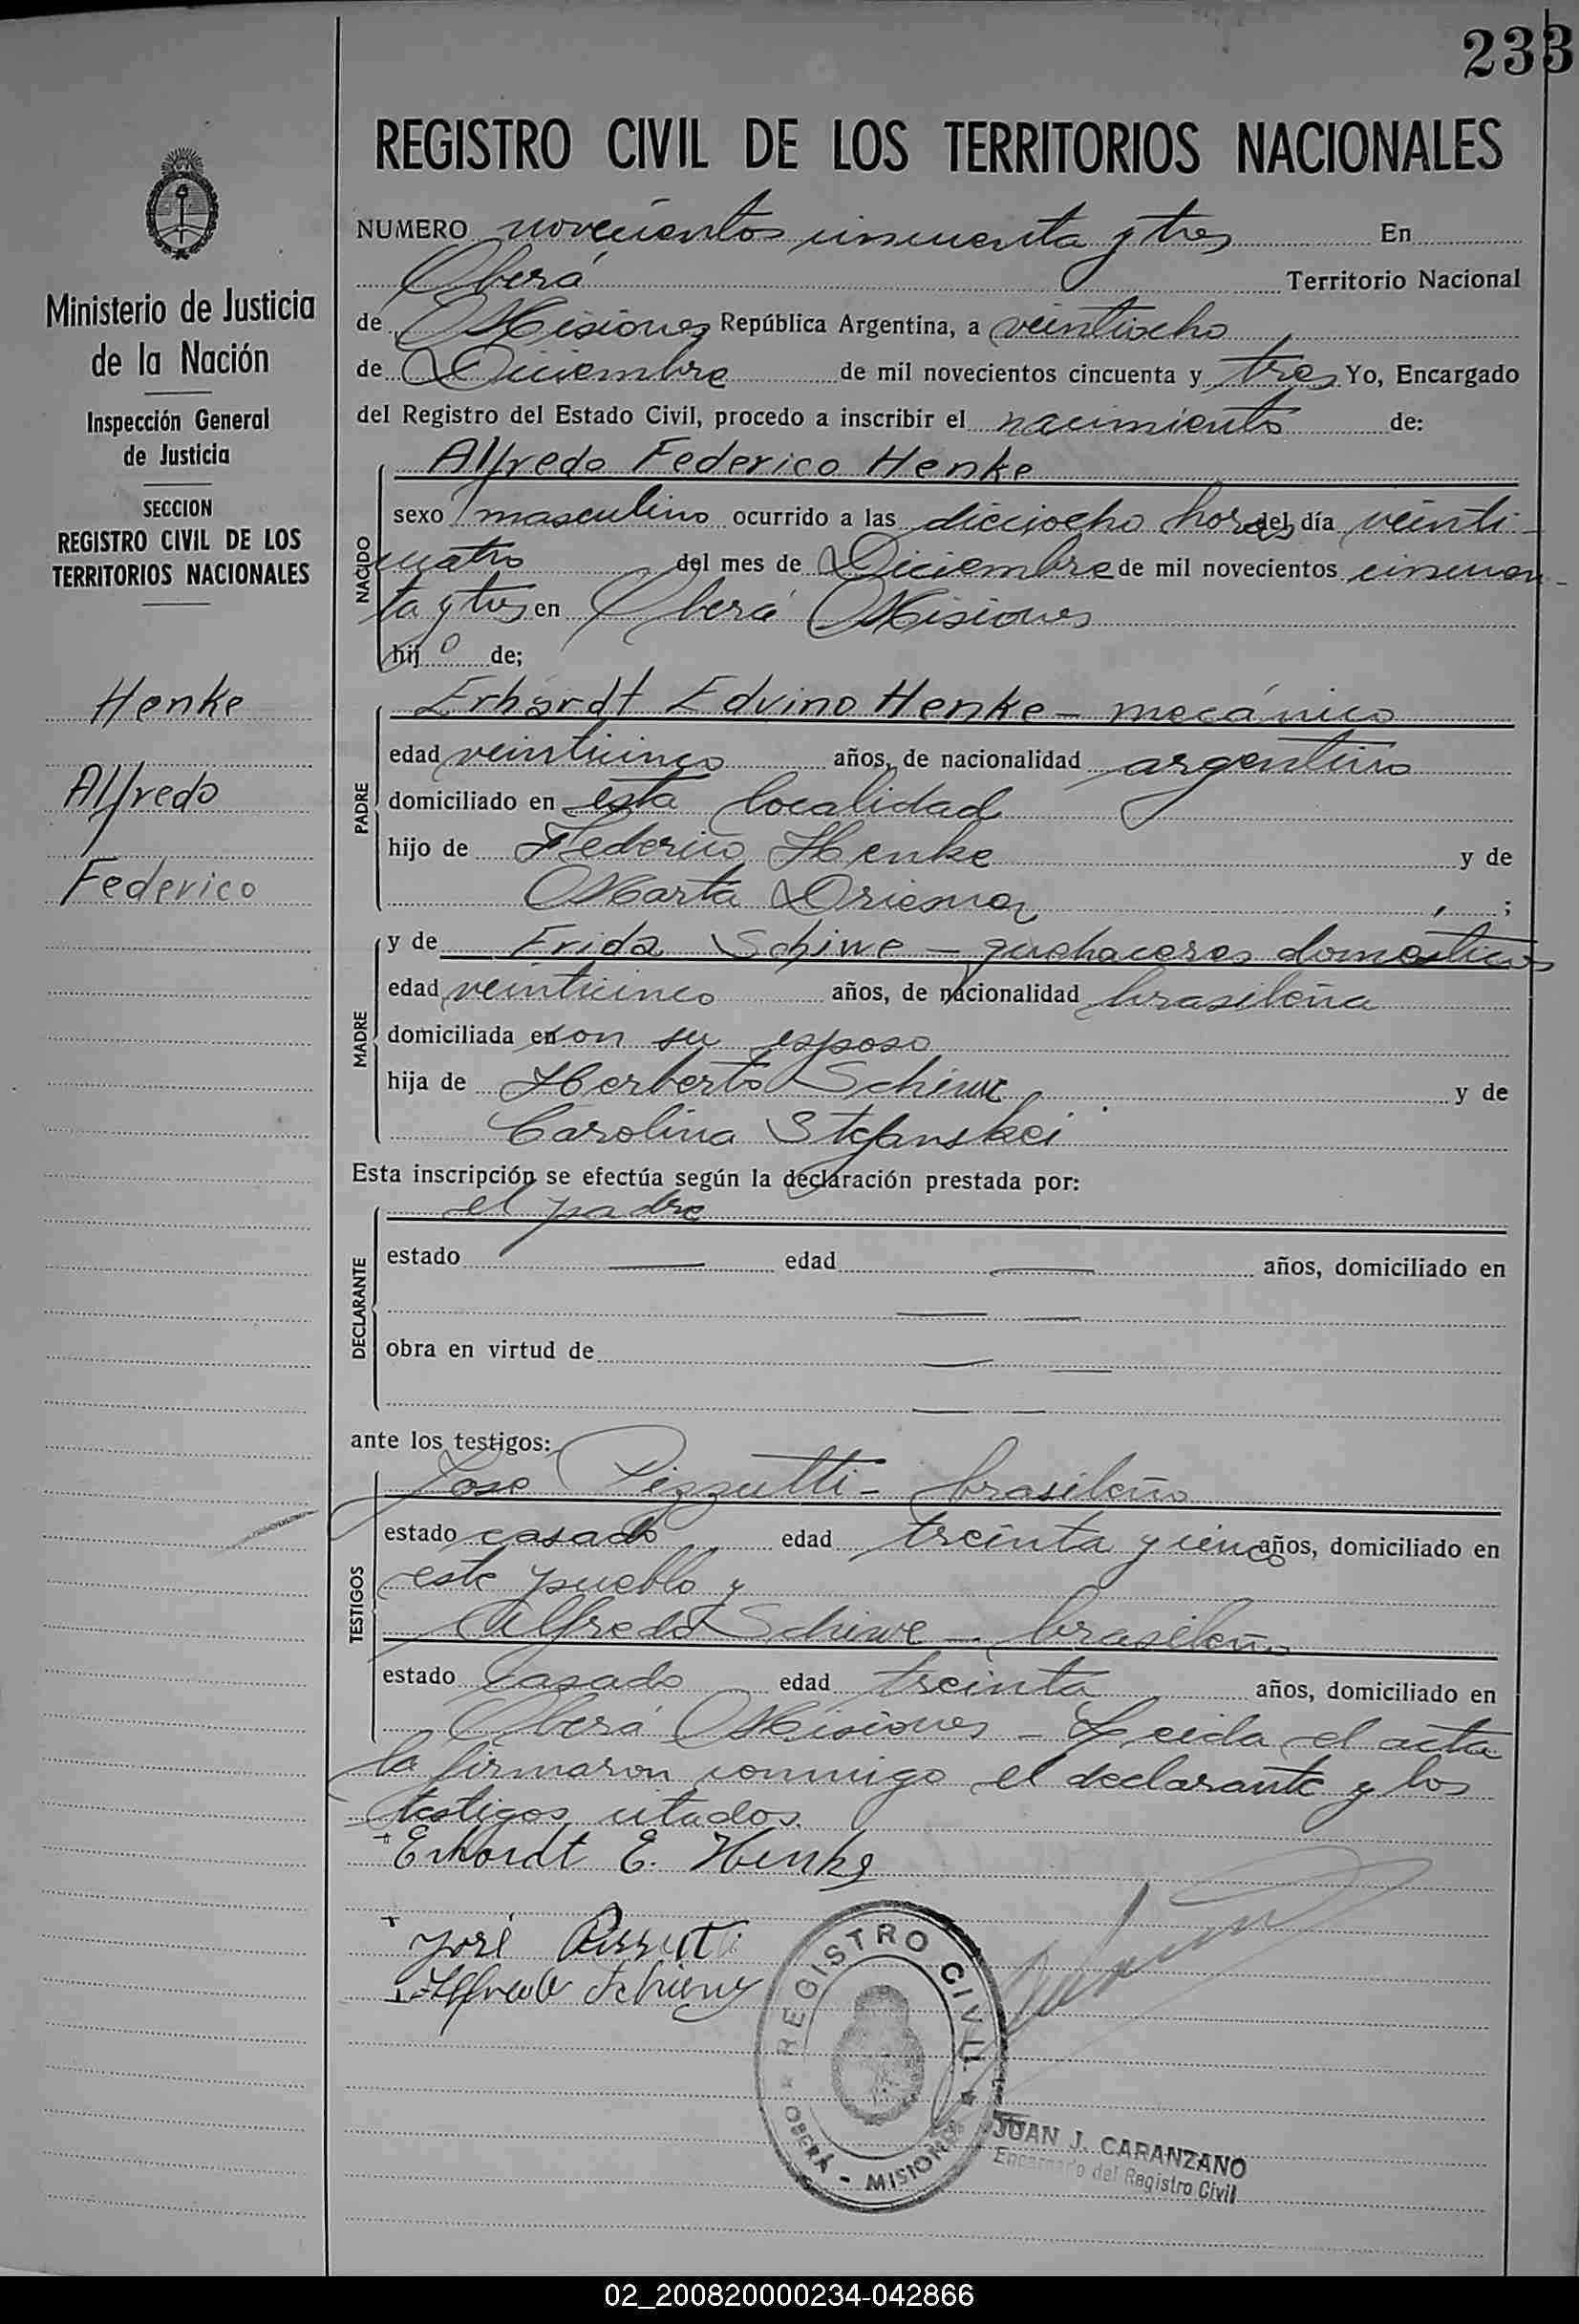 233
REGISTRO CIVIL DE LOS TERRITORIOS NACIONALES
Ministerio de Justicia
de la Nación
Inspección General
de Justicia
SECCION
REGISTRO CIVIL DE LOS
TERRITORIOS NACIONALES
Henke
Alfredo
Federico
NUMERO novecientos cincuenta y tres En
Oberá Territorio Nacional
de Misiones República Argentina, a veintiocho
de Diciembre de mil novecientos cincuenta y tres Yo, Encargado
del Registro del Estado Civil, procedo a inscribir el nacimiento de:
NACIDO
Alfredo Federico Henke
sexo masculino ocurrido a las dieciocho horas del día veinti-
cuatro del mes de Diciembre de mil novecientos cincuen-
ta y tres en Oberá Misiones
hijo de;
PADRE
Erhardt Edvino Henke - mecánico
edad veinticinco años, de nacionalidad argentino
domiciliado en esta localidad
hijo de Federico Henke y de
Marta ;
MADRE
y de Frida Schiwe - quehaceres domesticos
edad veinticinco años, de nacionalidad brasileña
domiciliada en con su esposo
hija de Herberto Schiwe y de
Carolina Stefanskei
Esta inscripción se efectúa según la declaración prestada por:
DECLARANTE
el padre
estado — edad — años, domiciliado en
— —
obra en virtud de — —
— —
ante los testigos:
TESTIGOS
Jose Pizzutti - brasileño
estado casado edad treinta y cinco años, domiciliado en
este pueblo y
Alfredo Schiwe - brasileño
estado casado edad treinta años, domiciliado en
Oberá Misiones - Leida el acta
la firmaron conmigo el declarante y los
testigos citados.
+ Erhardt E. Henke
+ José
+ Alfredo
REGISTRO CIVIL
OBERÁ - MISIONES
JUAN J. CARANZANO
Encargado del Registro Civil
02_200820000234-042866